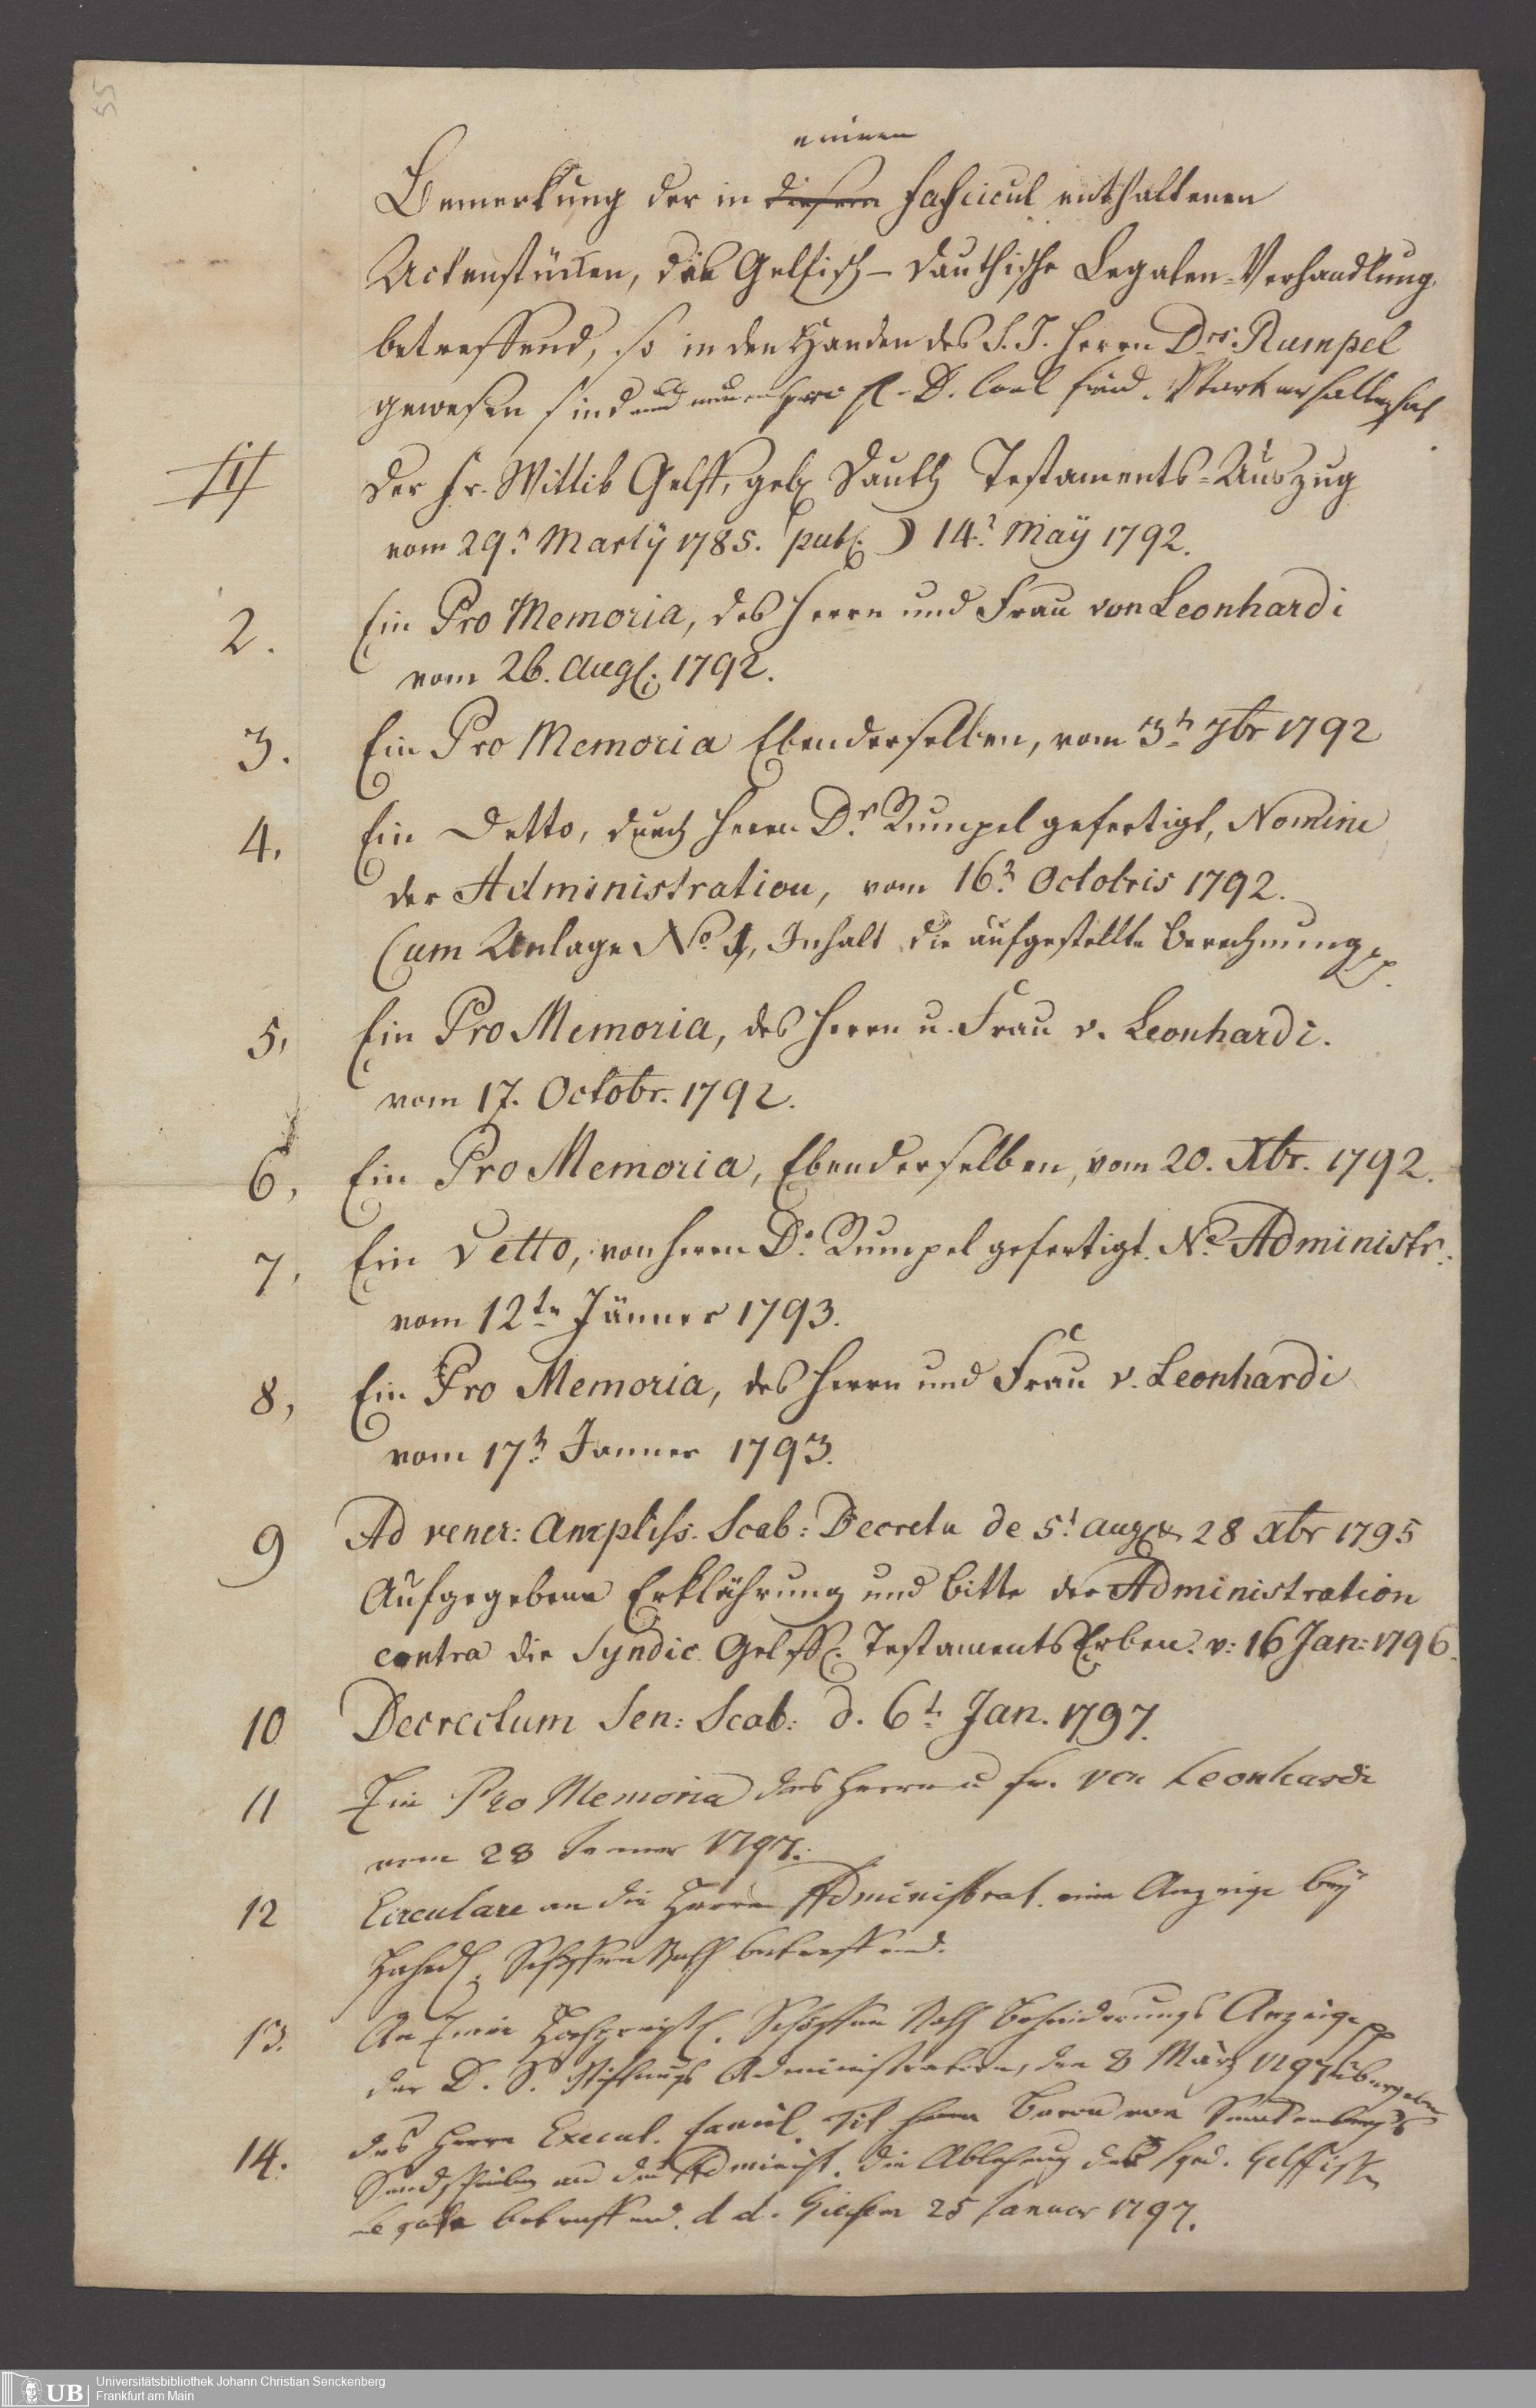 55
einem
Bemerkung der in diesem Fascicul enthaltenen
Actenstücken, die Gelfisch-Dauthische Legaten-Verhandlung
betreffend, so in den Handen des S. T. Herrn Drs. Rumpel
gewesen sind und nun H. D. Carl Frid. Stark erhalten hat
1
Der Fr. Wittib Gelff, geb. Dauth Testaments-Auszug
vom 29.t Martÿ 1785. publ. D 14.t Maÿ 1792.
2.
Ein Pro Memoria, des Herrn und Frau von Leonhardi
vom 26. Aug. 1792.
3.
Ein Pro Memoria Ebenderselben, vom 3.n 7br 1792
4,
Ein Detto, durch Herrn D.r Rumpel gefertigt, Nomine
der Administration, vom 16.n Octobris 1792.
Cum Anlage No. 1, Inhalt die aufgestellte Berechnung pp.
5,
Ein Pro Memoria, des Herrn u. Frau v. Leonhardi.
vom 17. Octobr. 1792.
6,
Ein Pro Memoria, Ebenderselben, vom 20. Xbr. 1792.
7,
Ein Detto, von Herrn D. Rumpel gefertigt. Ne. Administr.
vom 12.tn Jänner 1793.
8,
Ein Pro Memoria, des Herrn und Frau v. Leonhardi
vom 17.n Janner 1793.
9
Ad vener: Ampliss. Scab: Decreta de 5.t Aug. & 28 Xbr 1795
Aufgegebene Erklährung und Bitte der Administration
contra die Syndic. Gelff. Testaments Erben. v: 16 Jan: 1796.
10
Decretum Sen: Scab: d. 6.t Jan. 1797.
11
Ein Pro Memoria des Herrn u Fr. von Leonhardi
vom 28 Janner 1797.
12
Circulare an die Herren Administrat. eine Anzeige beÿ
Schöffen Rath betreffend.
13.
An Einen Hochpreißl. Schöffen Rath Anzeige pp
der D. S. Stiftungs Administration, den 8 März 1797 übergeben
14.
des Herrn Execut. Famil. Tit Herrn Baron von Senckenbergs
Sendschreiben an die Administ. die Ablesung des Synd. Gelffischen
Legats betreffend. d d. Giessen 25 Januar 1797.
UB
Universitätsbibliothek Johann Christian Senckenberg
Frankfurt am Main